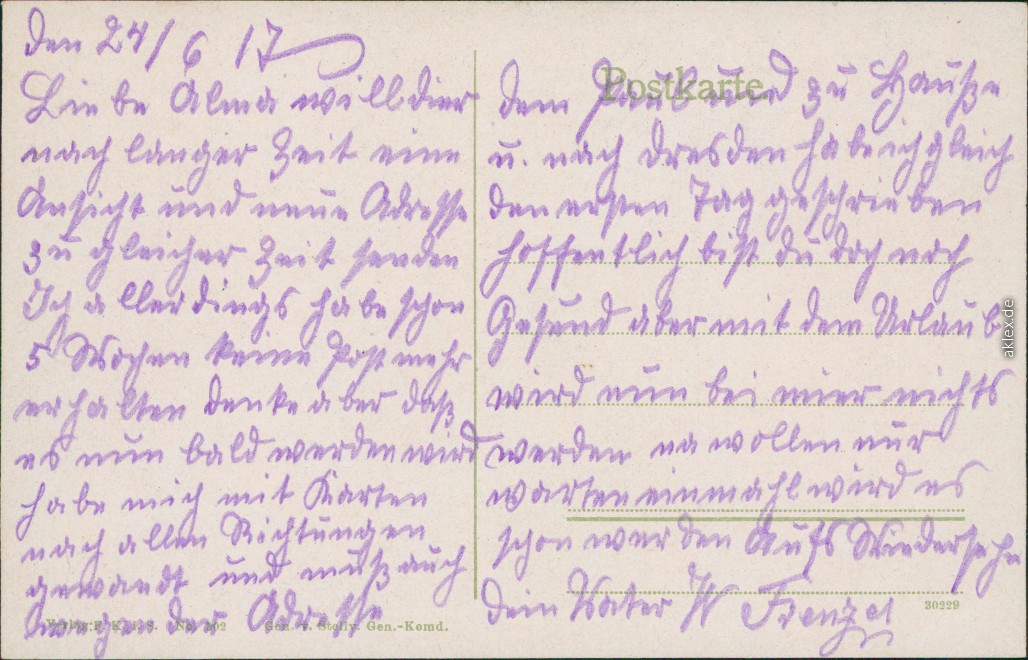 den 24/6 17
Liebe Alma will dier
nach langer Zeit eine
Ansicht und neue Adresse
zu gleicher Zeit senden
Ich allerdings habe schon
5 Wochen keine Post mehr
erhalten denke aber daß
es nun bald werden wird
habe mich mit Karten
nach allen Richtungen
gewandt und muß auch
wegen der Adresse
Postkarte.
dem und zu Hauße
u. nach Dresden habe ich gleich
den ersten Tag geschrieben
hoffentlich bist du doch noch
Gesund aber mit dem Urlaub
wird nun bei mier nichts
werden na wollen nur
warten einmahl wird es
schon werden Aufs Wiedersehn
dein Vater W Frenzel
Nr. 202 Gen. v. Stellv. Gen.-Komd.
30229
aklex.de